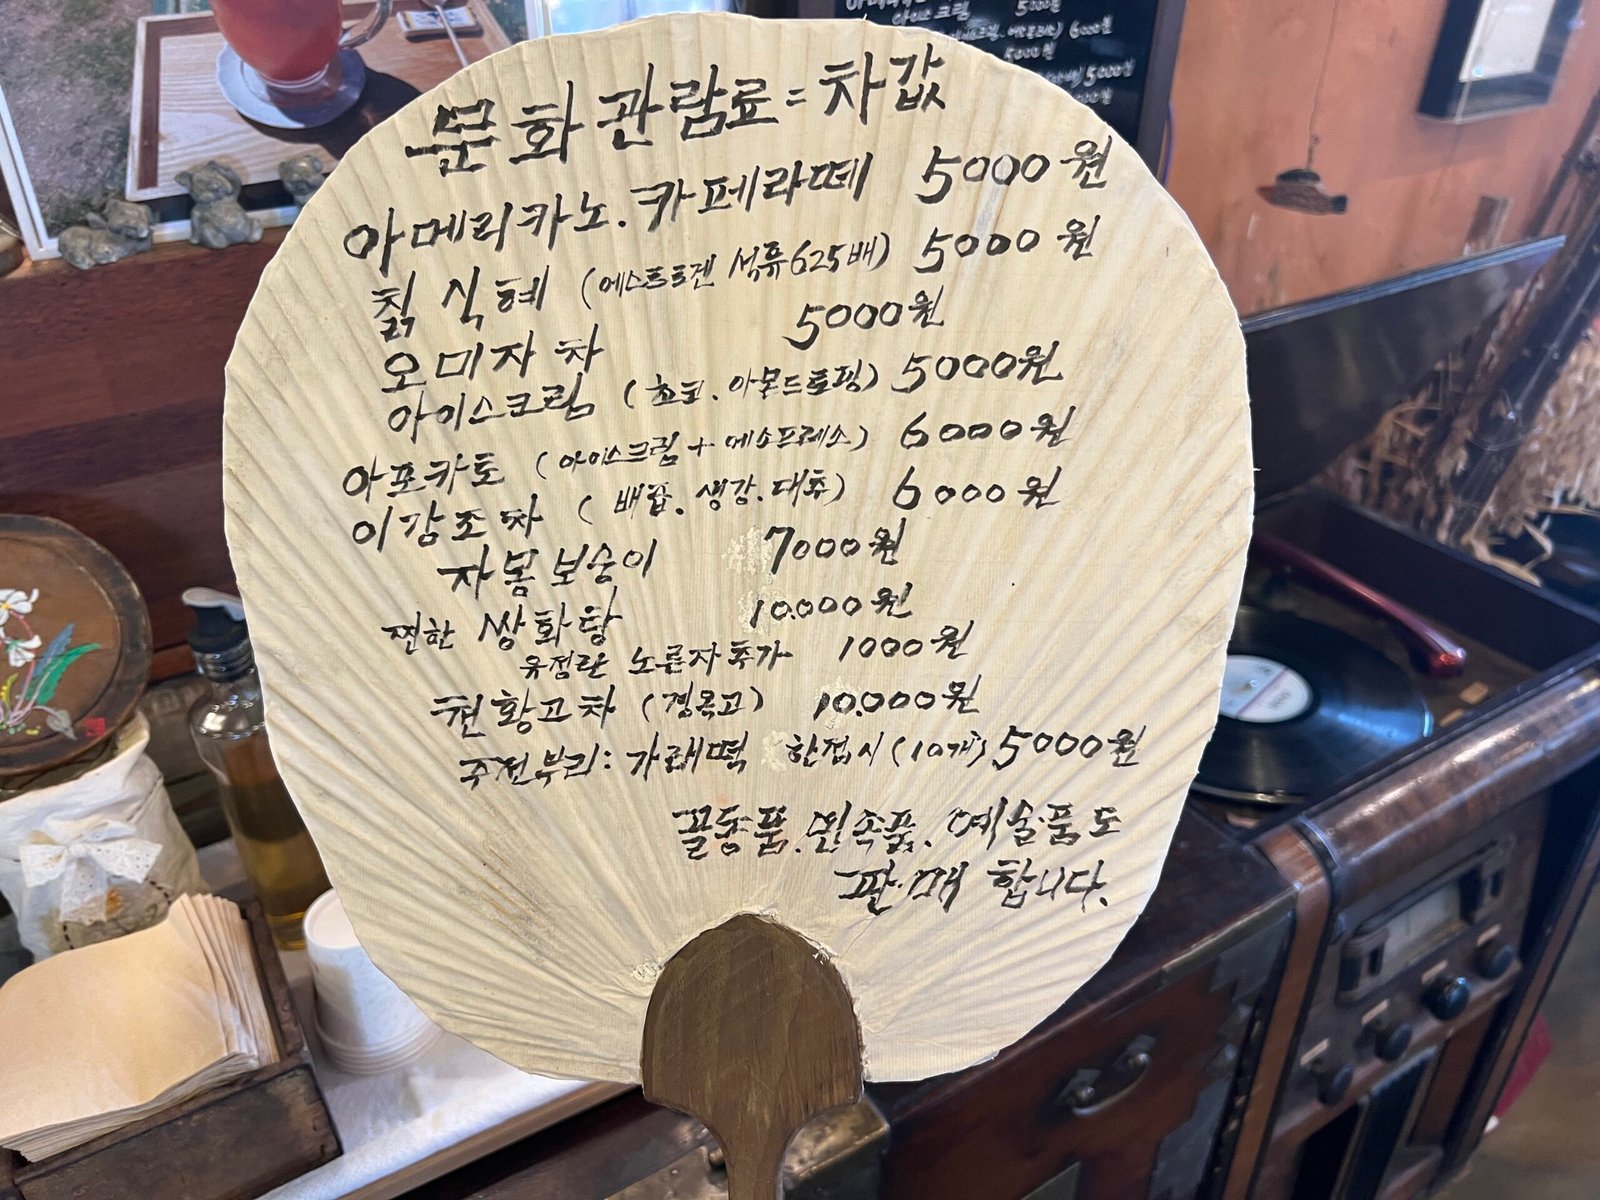 문화관람료=차값
아메리카노.카페라떼 5000원
칡 식혜 (에스트로겐 석류625배) 5000원
오미자 차 5000원
아이스크림 (초코.아몬드토핑) 5000원
아포카토 (아이스크림+에소프레소) 6000원
이강조차 (배즙.생강.대추) 6000원
자몽보숭이 7000원
찐한 쌍화탕 10.000원
유정란 노른자추가 1000원
천황고차 (경옥고) 10.000원
주전부리: 가래떡 한접시(10개) 5000원
골동품.민속품.예술품도
판매 합니다.
아이스크림 5000원
6000원
5000원
5000원